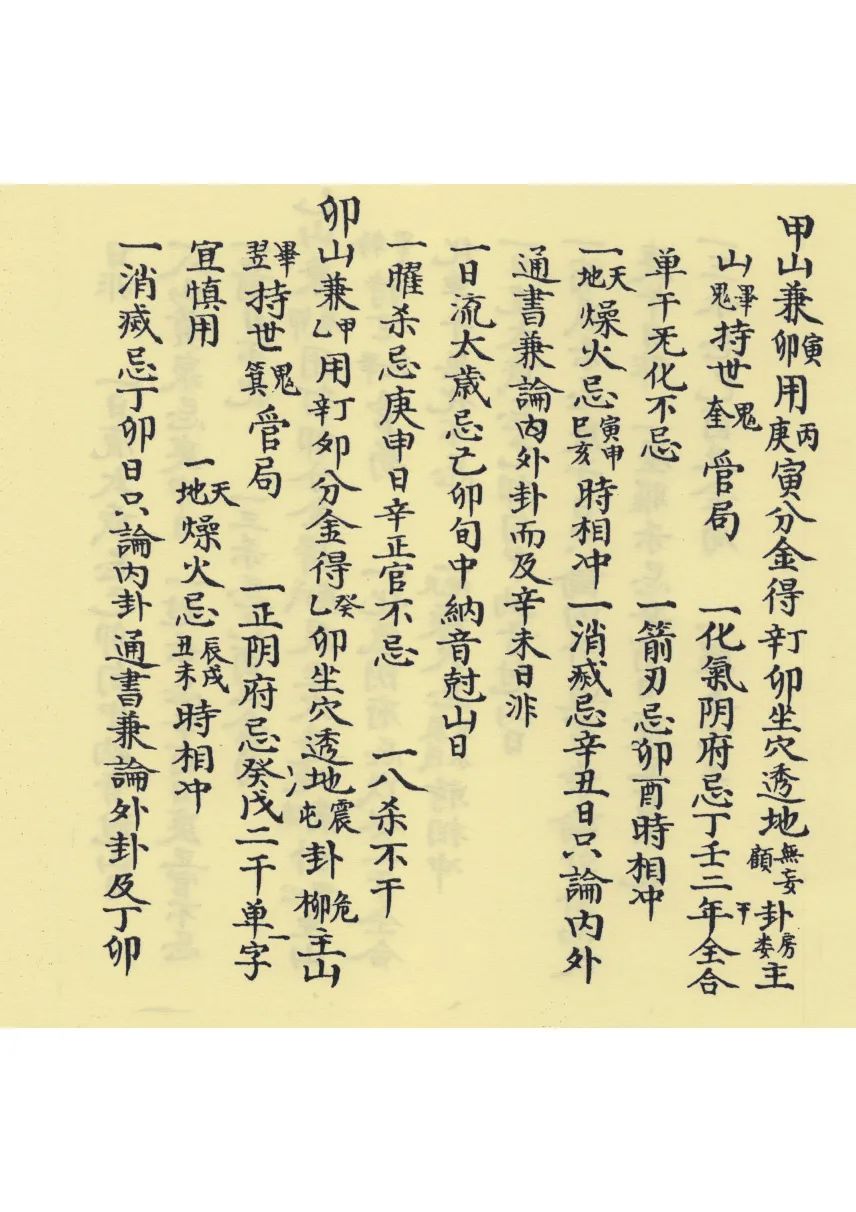 甲山兼寅卯用丙庚寅分金得辛丁卯坐穴透地無妄頤卦房娄主
山畢鬼持世鬼奎管局　一化氣阴府忌丁壬二干年全合
单干无化不忌　一箭刃忌卯酉時相冲
一天地燥火忌寅申巳亥時相冲一消滅忌辛丑日只論内外
通書兼論内外卦而及辛未日非
一日流太歲忌己卯旬中納音尅山日
一曜杀忌庚申日辛正官不忌　一八杀不干
卯山兼甲乙用辛丁卯分金得癸乙卯坐穴透地震屯卦危柳主山
畢翌持世鬼箕管局　一正阴府忌癸戊二干单一字
宜慎用　一天地燥火忌辰戌丑未時相冲
一消滅忌丁卯日只論内卦通書兼論外卦及丁卯